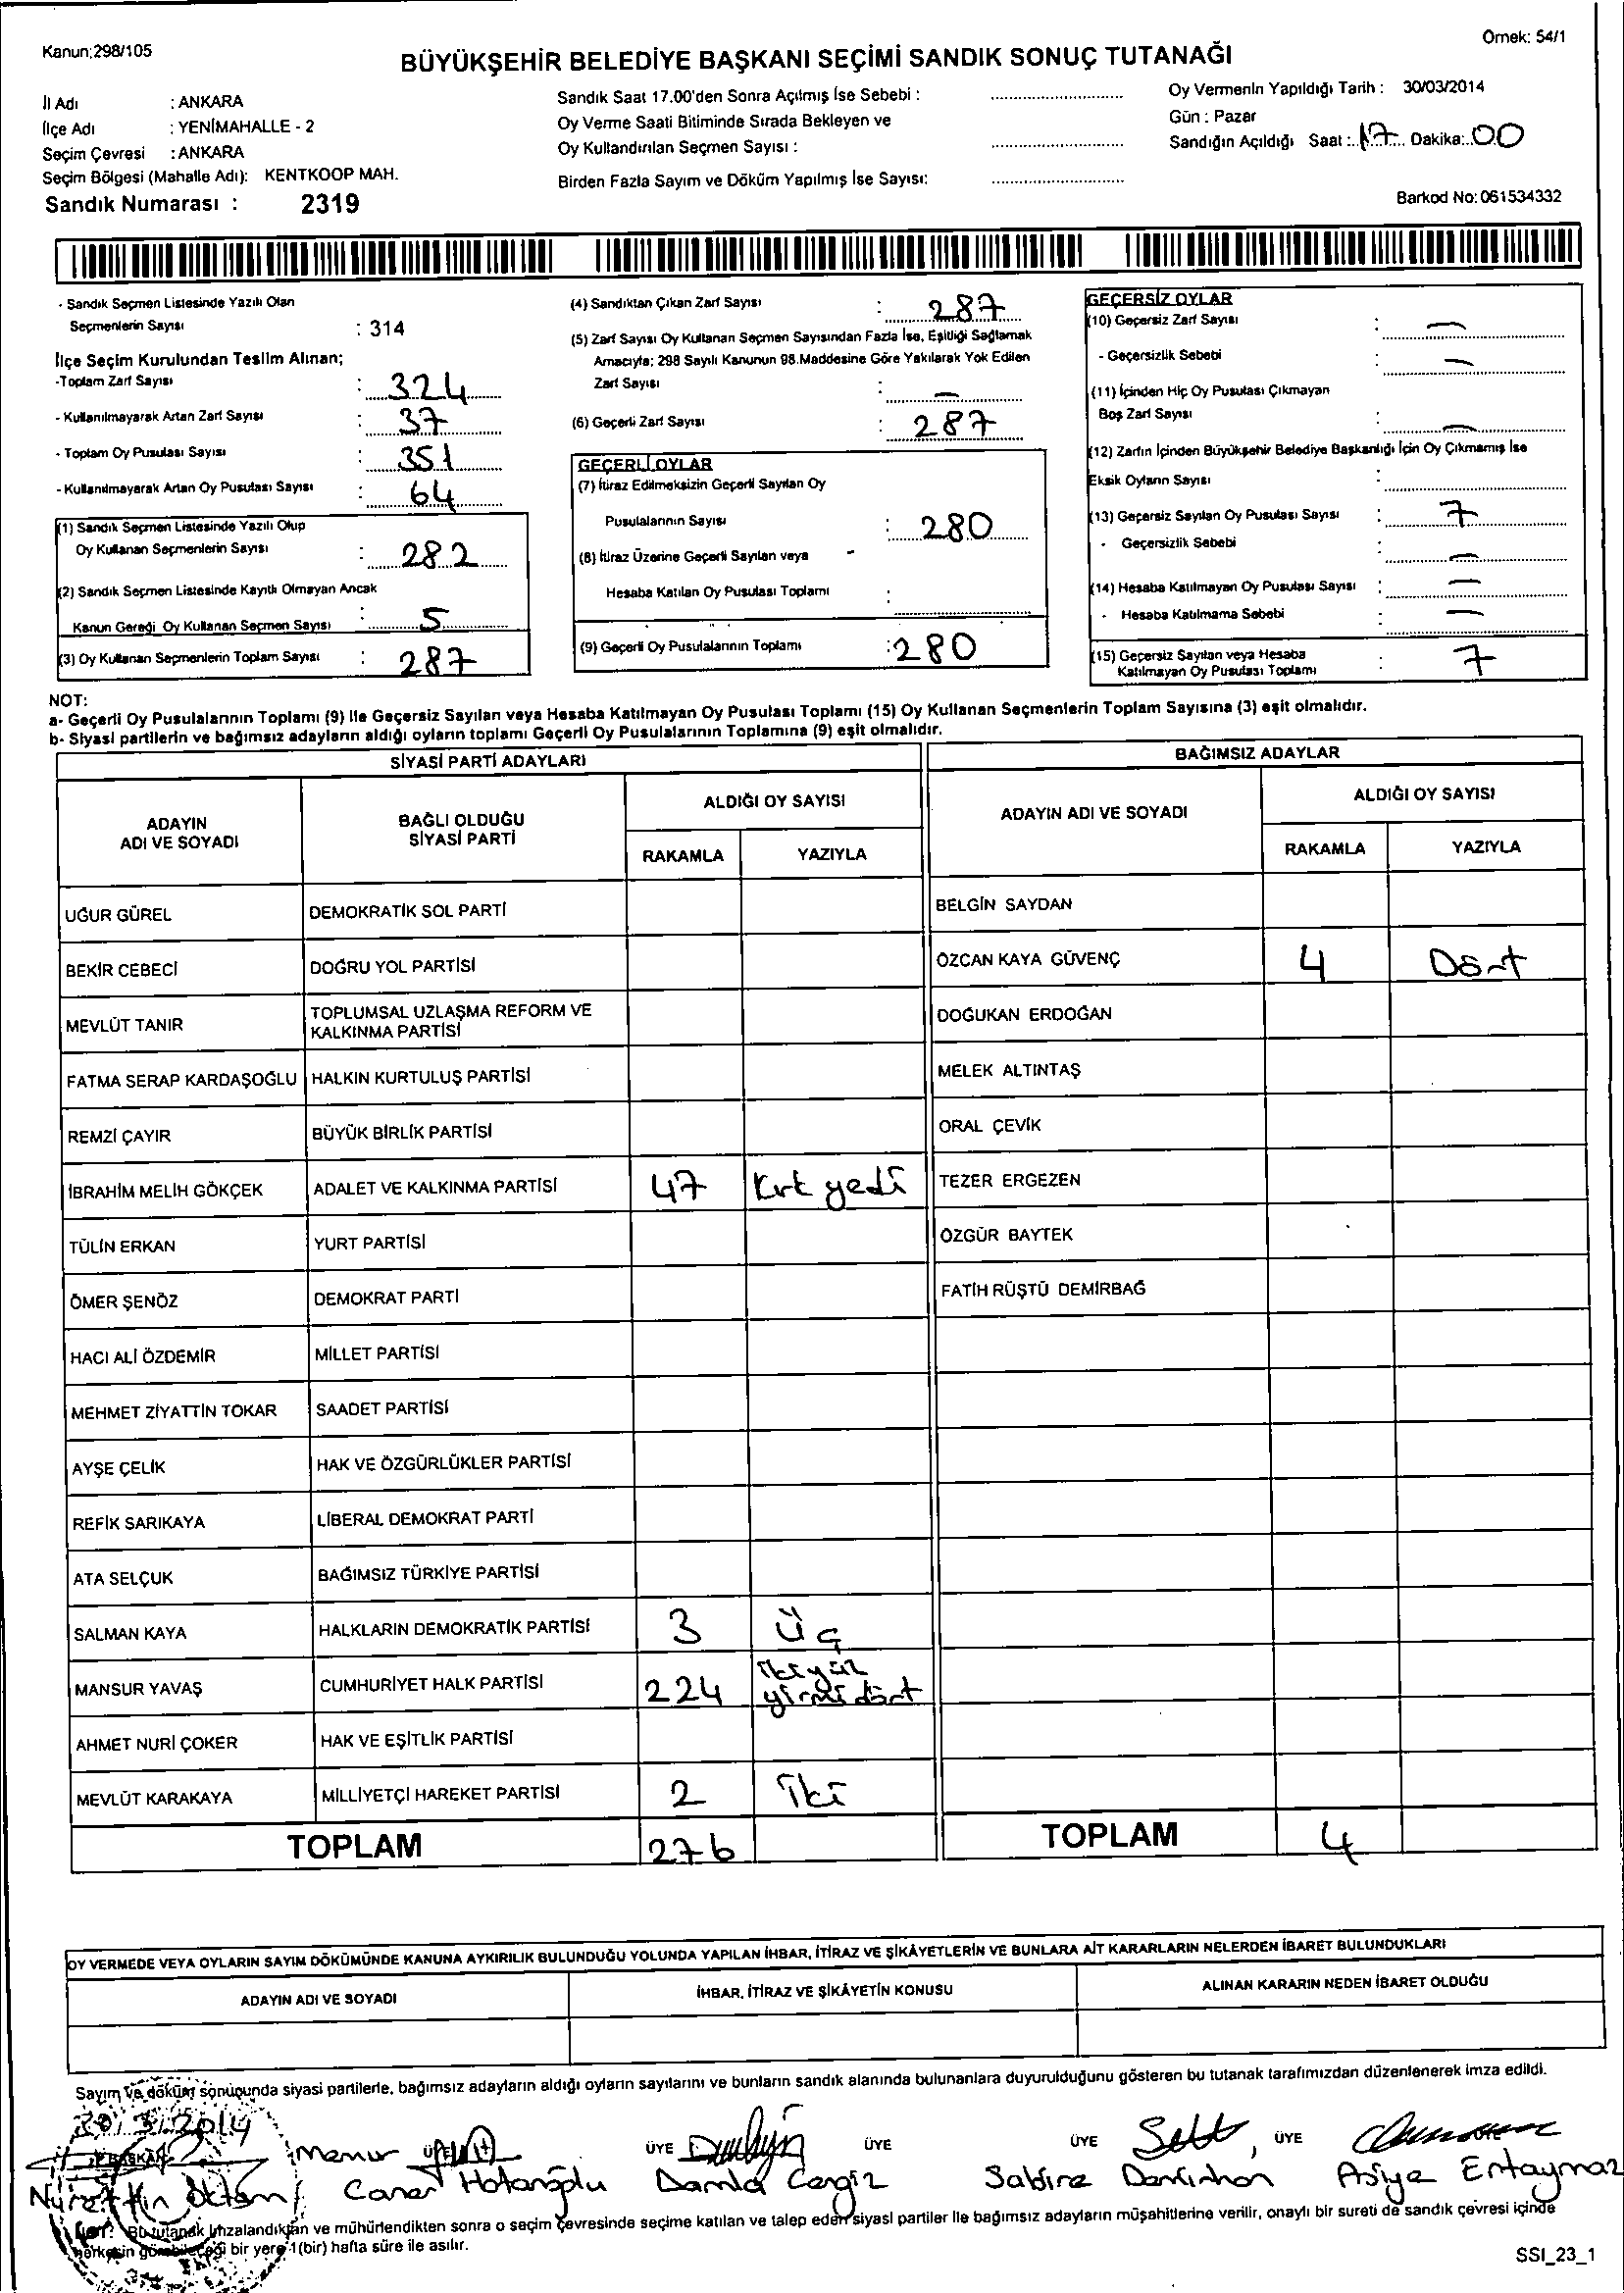 Kanun:298/105
Örnek: 54/1
BÜYÜKŞEHİR BELEDİYE BAŞKANI SEÇİMİ SANDIK SONUÇ TUTANAĞI
İl Adı : ANKARA
İlçe Adı : YENİMAHALLE - 2
Seçim Çevresi : ANKARA
Seçim Bölgesi (Mahalle Adı): KENTKOOP MAH.
Sandık Numarası : 2319
Sandık Saat 17.00'den Sonra Açılmış İse Sebebi :
Oy Verme Saati Bitiminde Sırada Bekleyen ve
Oy Kullandırılan Seçmen Sayısı :
Birden Fazla Sayım ve Döküm Yapılmış İse Sayısı:
Oy Vermenin Yapıldığı Tarih : 30/03/2014
Gün : Pazar
Sandığın Açıldığı Saat : 17 Dakika: 00
Barkod No: 061534332
- Sandık Seçmen Listesinde Yazılı Olan
Seçmenlerin Sayısı : 314
İlçe Seçim Kurulundan Teslim Alınan;
-Toplam Zarf Sayısı : 324
- Kullanılmayarak Artan Zarf Sayısı : 37
- Toplam Oy Pusulası Sayısı : 351
- Kullanılmayarak Artan Oy Pusulası Sayısı : 64
(1) Sandık Seçmen Listesinde Yazılı Olup
Oy Kullanan Seçmenlerin Sayısı : 282
(2) Sandık Seçmen Listesinde Kayıtlı Olmayan Ancak
Kanun Gereği Oy Kullanan Seçmen Sayısı : 5
(3) Oy Kullanan Seçmenlerin Toplam Sayısı : 287
(4) Sandıktan Çıkan Zarf Sayısı : 287
(5) Zarf Sayısı Oy Kullanan Seçmen Sayısından Fazla İse, Eşitliği Sağlamak
Amacıyla; 298 Sayılı Kanunun 98.Maddesine Göre Yakılarak Yok Edilen
Zarf Sayısı : —
(6) Geçerli Zarf Sayısı : 287
GEÇERLİ OYLAR
(7) İtiraz Edilmeksizin Geçerli Sayılan Oy
Pusulalarının Sayısı : 280
(8) İtiraz Üzerine Geçerli Sayılan veya -
Hesaba Katılan Oy Pusulası Toplamı :
(9) Geçerli Oy Pusulalarının Toplamı : 280
GEÇERSİZ OYLAR
(10) Geçersiz Zarf Sayısı : —
- Geçersizlik Sebebi : —
(11) İçinden Hiç Oy Pusulası Çıkmayan
Boş Zarf Sayısı : —
(12) Zarfın İçinden Büyükşehir Belediye Başkanlığı İçin Oy Çıkmamış İse
Eksik Oyların Sayısı :
(13) Geçersiz Sayılan Oy Pusulası Sayısı : 7
- Geçersizlik Sebebi : —
(14) Hesaba Katılmayan Oy Pusulası Sayısı : —
- Hesaba Katılmama Sebebi : —
(15) Geçersiz Sayılan veya Hesaba
Katılmayan Oy Pusulası Toplamı : 7
NOT:
a- Geçerli Oy Pusulalarının Toplamı (9) ile Geçersiz Sayılan veya Hesaba Katılmayan Oy Pusulası Toplamı (15) Oy Kullanan Seçmenlerin Toplam Sayısına (3) eşit olmalıdır.
b- Siyasi partilerin ve bağımsız adayların aldığı oyların toplamı Geçerli Oy Pusulalarının Toplamına (9) eşit olmalıdır.
SİYASİ PARTİ ADAYLARI
ADAYIN
ADI VE SOYADI
BAĞLI OLDUĞU
SİYASİ PARTİ
ALDIĞI OY SAYISI
RAKAMLA YAZIYLA
UĞUR GÜREL DEMOKRATİK SOL PARTİ
BEKİR CEBECİ DOĞRU YOL PARTİSİ
MEVLÜT TANIR TOPLUMSAL UZLAŞMA REFORM VE
KALKINMA PARTİSİ
FATMA SERAP KARDAŞOĞLU HALKIN KURTULUŞ PARTİSİ
REMZİ ÇAYIR BÜYÜK BİRLİK PARTİSİ
İBRAHİM MELİH GÖKÇEK ADALET VE KALKINMA PARTİSİ 47 Kırk yedi
TÜLİN ERKAN YURT PARTİSİ
ÖMER ŞENÖZ DEMOKRAT PARTİ
HACI ALİ ÖZDEMİR MİLLET PARTİSİ
MEHMET ZİYATTİN TOKAR SAADET PARTİSİ
AYŞE ÇELİK HAK VE ÖZGÜRLÜKLER PARTİSİ
REFİK SARIKAYA LİBERAL DEMOKRAT PARTİ
ATA SELÇUK BAĞIMSIZ TÜRKİYE PARTİSİ
SALMAN KAYA HALKLARIN DEMOKRATİK PARTİSİ 3 Üç
MANSUR YAVAŞ CUMHURİYET HALK PARTİSİ 224 ikiyüz
yirmi dört
AHMET NURİ ÇOKER HAK VE EŞİTLİK PARTİSİ
MEVLÜT KARAKAYA MİLLİYETÇİ HAREKET PARTİSİ 2 İki
TOPLAM 276
BAĞIMSIZ ADAYLAR
ADAYIN ADI VE SOYADI
ALDIĞI OY SAYISI
RAKAMLA YAZIYLA
BELGİN SAYDAN
ÖZCAN KAYA GÜVENÇ 4 Dört
DOĞUKAN ERDOĞAN
MELEK ALTINTAŞ
ORAL ÇEVİK
TEZER ERGEZEN
ÖZGÜR BAYTEK
FATİH RÜŞTÜ DEMİRBAĞ
TOPLAM 4
OY VERMEDE VEYA OYLARIN SAYIM DÖKÜMÜNDE KANUNA AYKIRILIK BULUNDUĞU YOLUNDA YAPILAN İHBAR, İTİRAZ VE ŞİKÂYETLERİN VE BUNLARA AİT KARARLARIN NELERDEN İBARET BULUNDUKLARI
ADAYIN ADI VE SOYADI İHBAR, İTİRAZ VE ŞİKÂYETİN KONUSU ALINAN KARARIN NEDEN İBARET OLDUĞU
Sayım ve döküm sonucunda siyasi partilerle, bağımsız adayların aldığı oyların sayılarını ve bunların sandık alanında bulunanlara duyurulduğunu gösteren bu tutanak tarafımızdan düzenlenerek imza edildi.
30/3/2014
BAŞKAN ÜYE ÜYE ÜYE ÜYE ÜYE
memur
Nurettin Öktem Caner Damla Cengiz Sabire Asiye
NOT: Bu tutanak imzalandıktan ve mühürlendikten sonra o seçim çevresinde seçime katılan ve talep eden siyasi partiler ile bağımsız adayların müşahitlerine verilir, onaylı bir sureti de sandık çevresi içinde
herkesin görebileceği bir yere 1(bir) hafta süre ile asılır.
SSI_23_1